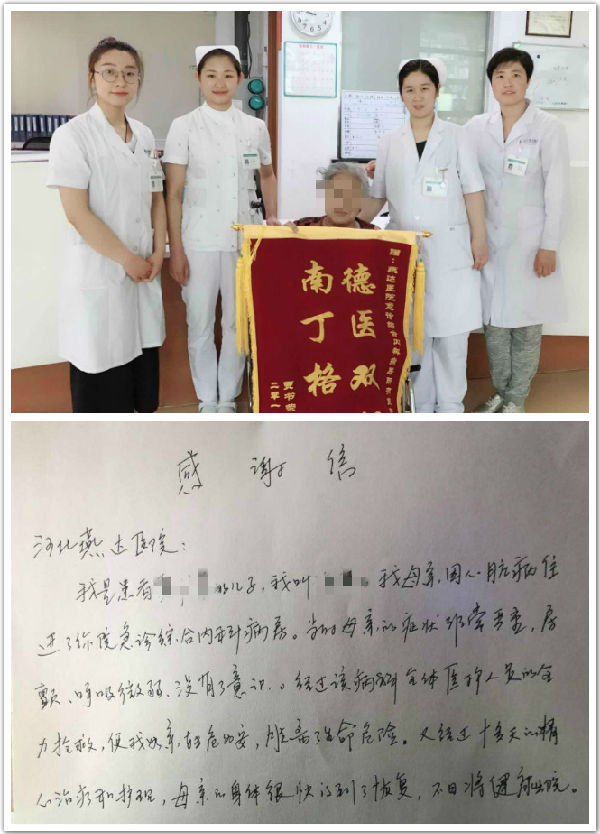 赠:燕达医院急诊综合内科
德医双
南丁格
二零一
感谢信
河北燕达医院:
我是患者的儿子,我叫。我母亲因心脏病住
进了你院急诊综合内科病房。当时母亲的症状非常严重,房
颤、呼吸微弱、没有了意识。经过该病科全体医护人员的全
力抢救,使我母亲转危为安,脱离了生命危险。又经过十多天的精
心治疗和护理,母亲的身体很快的得到了恢复,不日将健康出院。